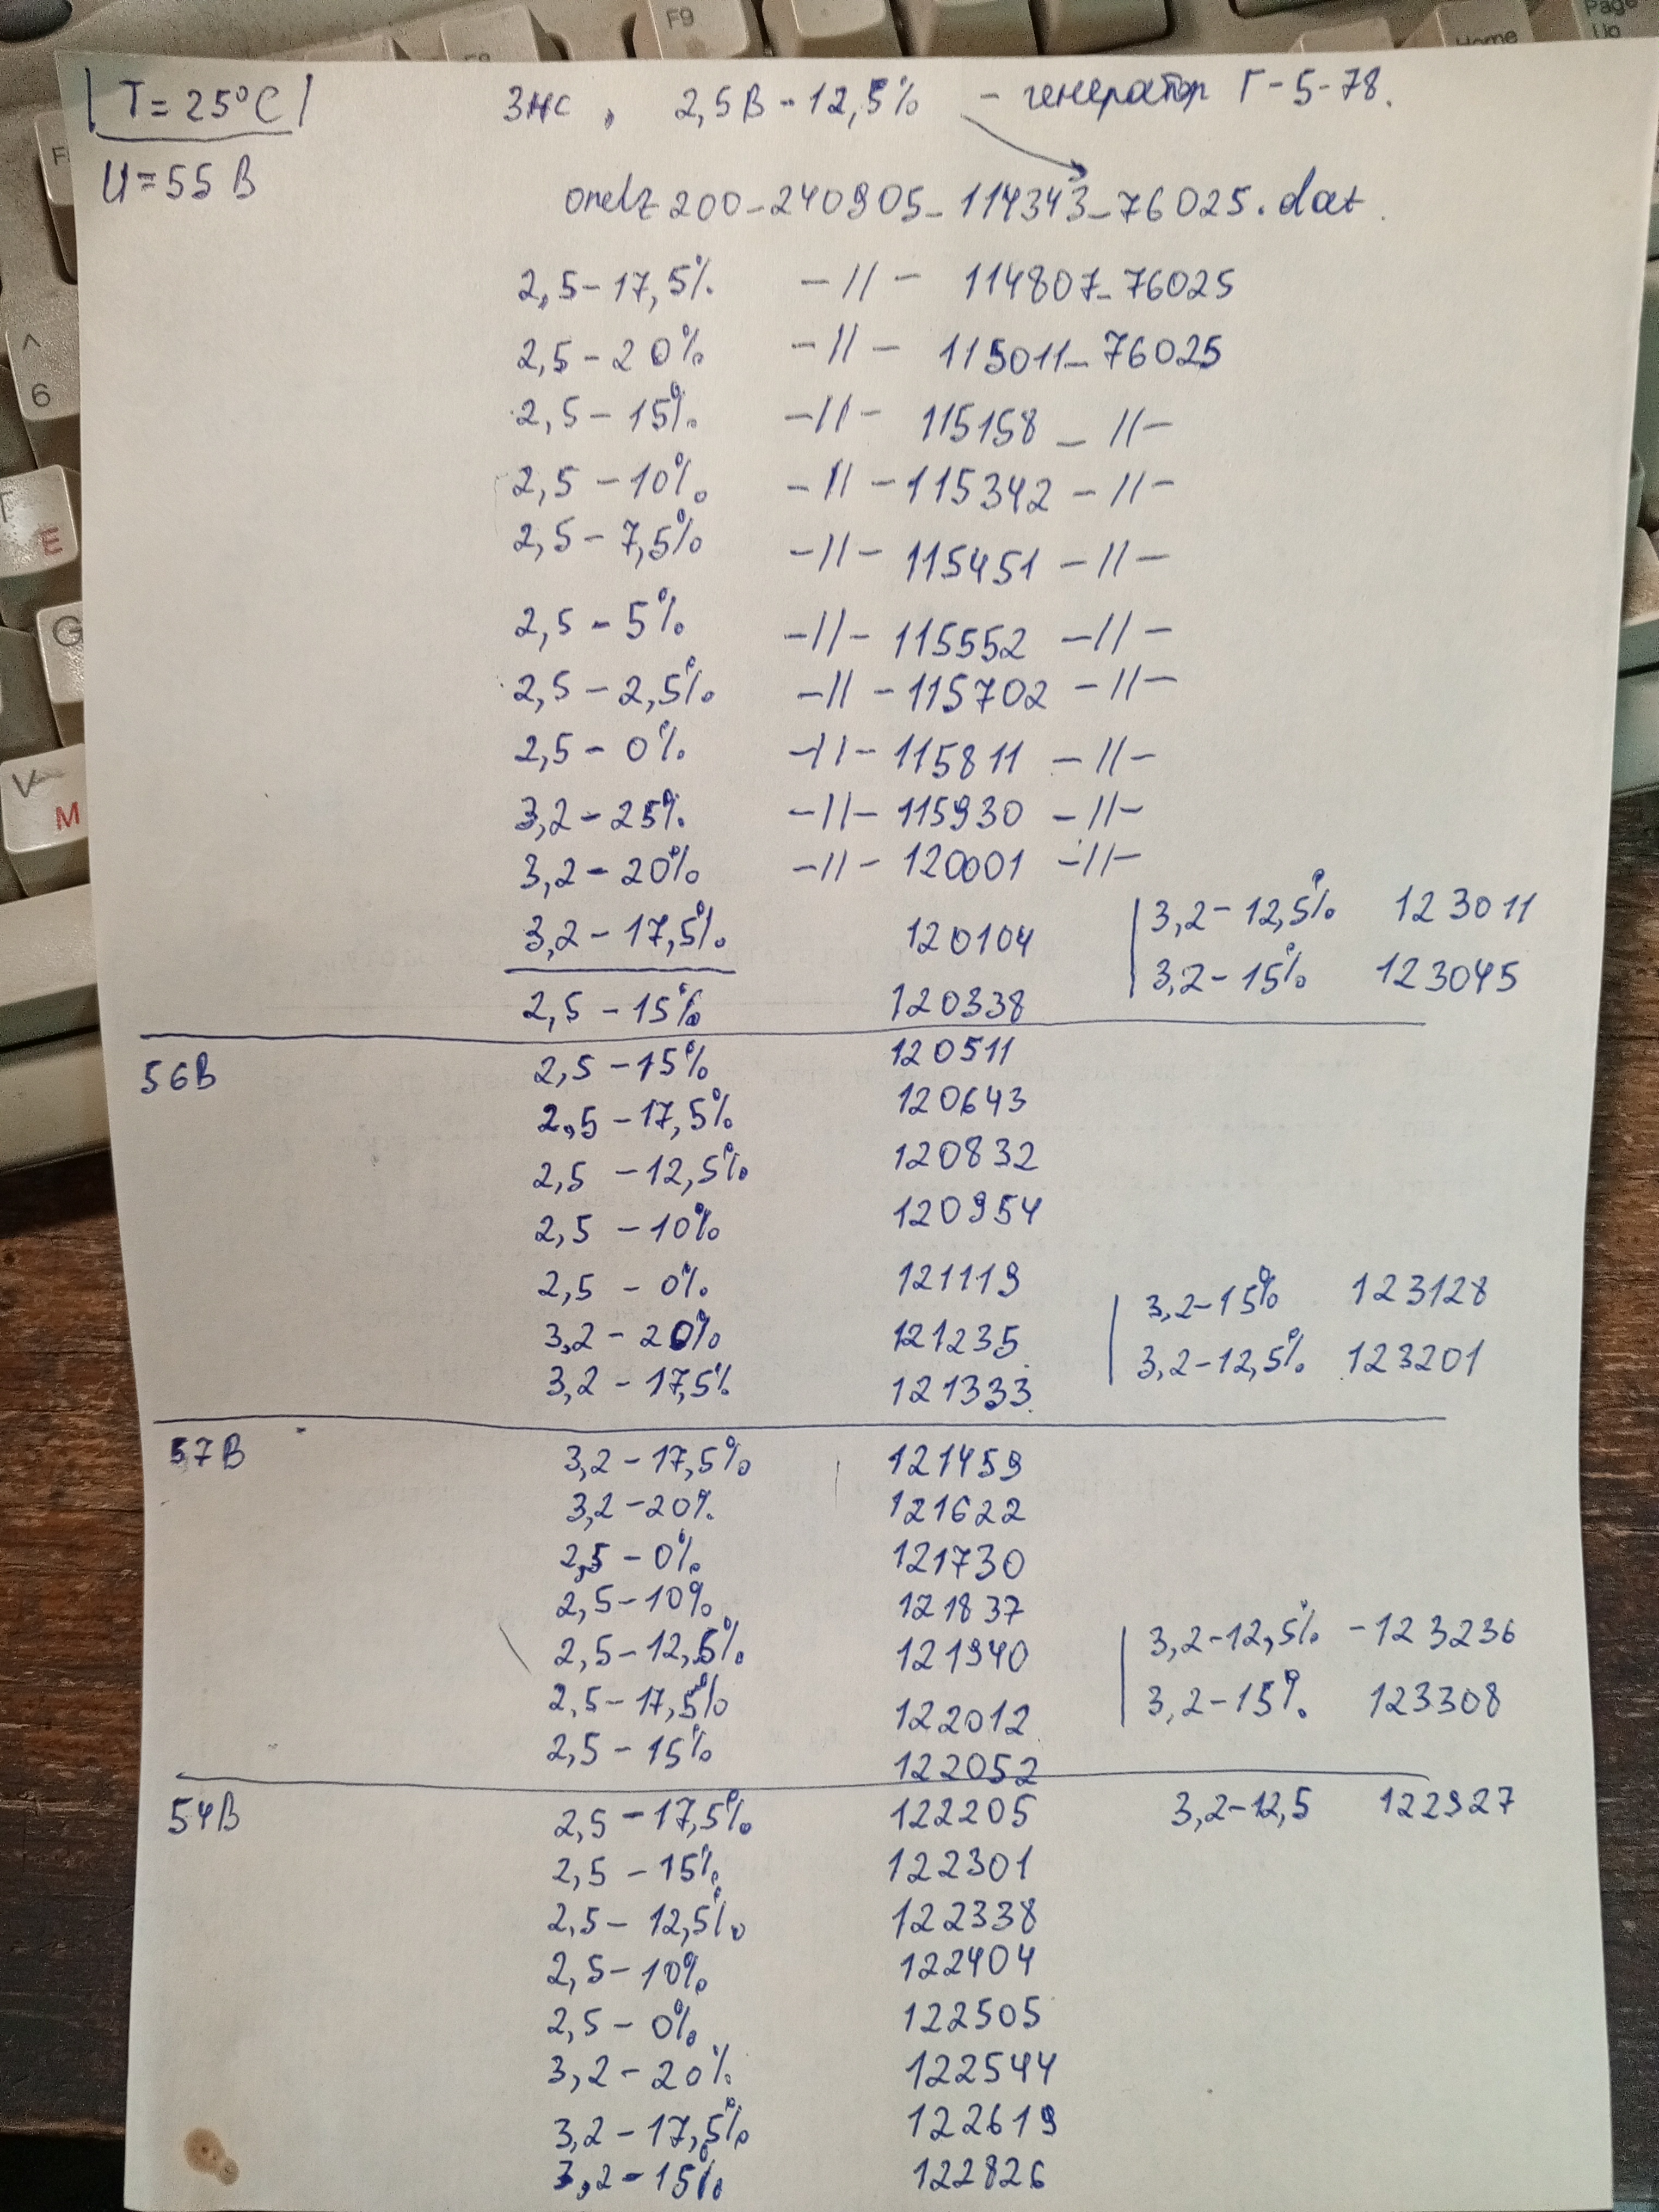 T = 25°C
3нс, 2,5В - 12,5% - генератор Г-5-78.
U = 55 В
onelz200_240905_114343_76025.dat
2,5 - 17,5% -//- 114807_76025
2,5 - 20% -//- 115011_76025
2,5 - 15% -//- 115158 _ //-
2,5 - 10% -//- 115342 -//-
2,5 - 7,5% -//- 115451 -//-
2,5 - 5% -//- 115552 -//-
2,5 - 2,5% -//- 115702 -//-
2,5 - 0% -//- 115811 -//-
3,2 - 25% -//- 115930 -//-
3,2 - 20% -//- 120001 -//-
3,2 - 17,5% 120104
3,2 - 12,5% 123011
3,2 - 15% 123045
2,5 - 15% 120338
56В 2,5 - 15% 120511
2,5 - 17,5% 120643
2,5 - 12,5% 120832
2,5 - 10% 120954
2,5 - 0% 121119
3,2 - 20% 121235
3,2 - 17,5% 121333
3,2 - 15% 123128
3,2 - 12,5% 123201
57В 3,2 - 17,5% 121459
3,2 - 20% 121622
2,5 - 0% 121730
2,5 - 10% 121837
2,5 - 12,5% 121940
2,5 - 17,5% 122012
2,5 - 15% 122052
3,2 - 12,5% - 123236
3,2 - 15% 123308
54В 2,5 - 17,5% 122205 3,2 - 12,5 122927
2,5 - 15% 122301
2,5 - 12,5% 122338
2,5 - 10% 122404
2,5 - 0% 122505
3,2 - 20% 122544
3,2 - 17,5% 122619
3,2 - 15% 122826
F9
Home
Page Up
^
6
E
G
V
M